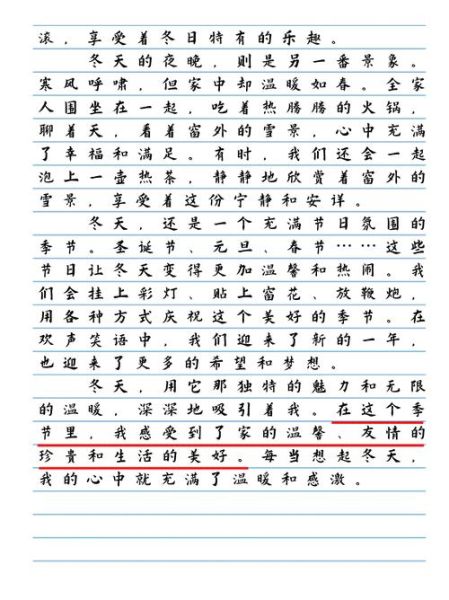 滚，享受着冬日特有的乐趣。
冬天的夜晚，则是另一番景象。
寒风呼啸，但家中却温暖如春。全家
人围坐在一起，吃着热腾腾的火锅，
聊着天，看着窗外的雪景，心中充满
了幸福和满足。有时，我们还会一起
泡上一壶热茶，静静地欣赏着窗外的
雪景，享受着这份宁静和安详。
冬天，还是一个充满节日氛围的
季节。圣诞节、元旦、春节……这些
节日让冬天变得更加温馨和热闹。我
们会挂上彩灯、贴上窗花、放鞭炮，
用各种方式庆祝这个美好的季节。在
欢声笑语中，我们迎来了新的一年，
也迎来了更多的希望和梦想。
冬天，用它那独特的魅力和无限
的温暖，深深地吸引着我。在这个季
节里，我感受到了家的温馨、友情的
珍贵和生活的美好。每当想起冬天，
我的心中就充满了温暖和感激。